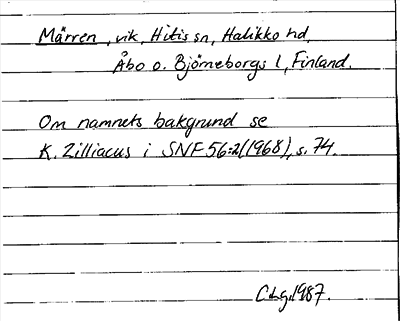 Märren, vik, Hitis sn, Halikko hd,
Åbo o. Björneborgs l, Finland.
Om namnets bakgrund se
K. Zilliacus i SNF 56:2(1968), s. 74.
CLg.1987.